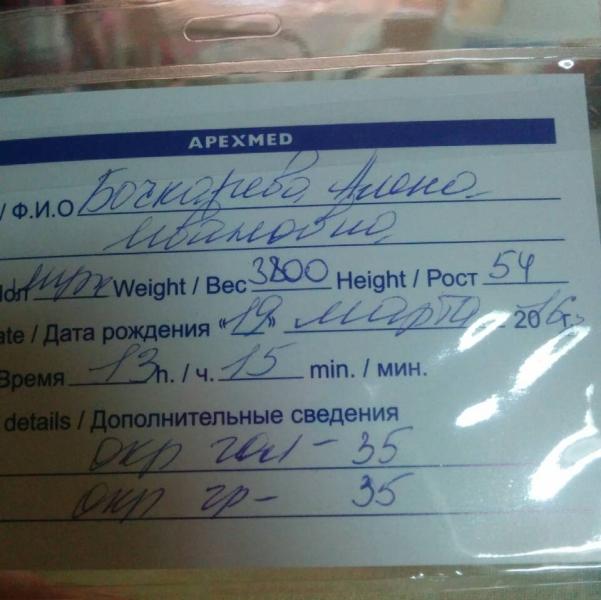 APEXMED
/ Ф.И.О Бочкарева Алена
Ивановна
Пол муж Weight / Вес 3800 Height / Рост 54
ate / Дата рождения «19» марта 2016 г.
Время 13 h. / ч. 15 min. / мин.
details / Дополнительные сведения
окр гол - 35
окр гр - 35